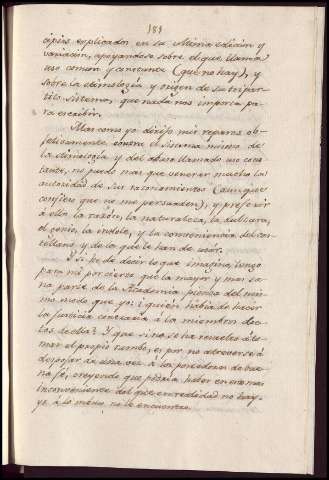 181
cipios explicados en su Misma edicion y
variacion, apoyandose sobre el que llama
uso comun y constante (que no hay), y
sobre la etimología y origen de su tripar-
tito sistema, que nada nos importa pa-
ra escribir.
Mas como yo dirijo mis reparos ob-
jetivamente contra el sistema mismo de
la etimología y del abuso llamado uso cons-
tante, no puedo mas que venerar mucho la
autoridad de sus razonamientos (aunque
confieso que no me persuaden), y preferir
á ella la razón, la naturaleza, la dulzura,
el genio, la indole, y la conveniencia del cas-
tellano y de los que le han de usar.
Y si he de decir lo que imagino, tengo
para mí por cierto que la mayor y mas sa-
na parte de la Academia piensa del mis-
mo modo que yo: ¿quién habia de hacer
la justicia contraria á los miembros doc-
tos de ella? Y que si no se ha resuelto á to-
mar el propio rumbo, es por no atreverse á
despojar de una vez á los poseedores de bue-
na fé, creyendo que podria haber en eso mas
inconveniente del que en realidad no hay,
yo á lo menos no le encuentro.